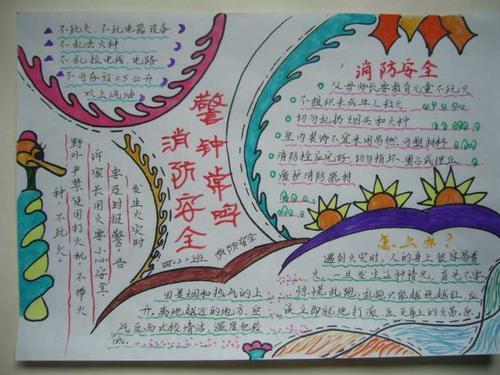 不玩火、不玩电器设备
不乱丢火种
不乱拉电线、电路
不可存放0.5公升
以上汽油
警钟常鸣
消防安全
四(2)班
消防安全
发生火灾时
要及时报警。告
诉家长用火要小心安全
野外严禁使用打火机。不带火
种，不玩火。
因是烟和热气的上
升，离地越近的地方，空
气反而比较清洁，温度也较
低。
消防安全
父母师长要教育儿童不玩火
不组织未成年人救火
切勿乱扔烟头和火种
室内装饰不宜采用易燃、可塑材料
消防栓应完好，切勿损坏、圈占或埋压
爱护消防器材
怎么办？
遇到火灾时，人的身上很容易着
火，一旦发生这种情况，首先不要
惊慌乱跑，乱跑只能越跑越旺，应
该立即就地打滚，压灭身上的火苗，